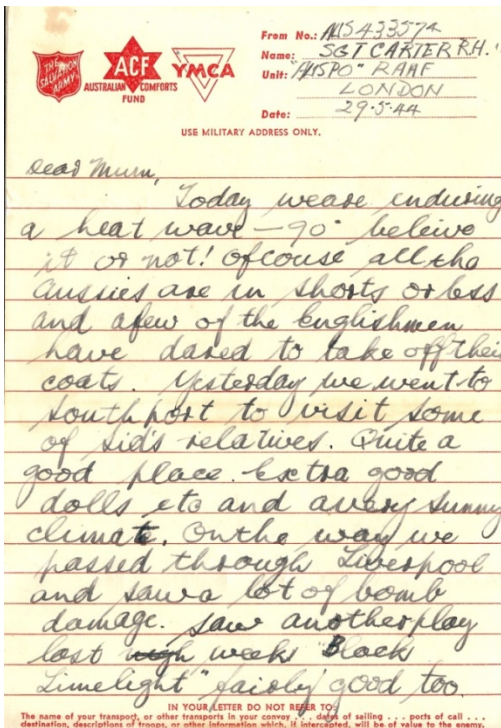 THE SALVATION ARMY
ACF
AUSTRALIAN COMFORTS FUND
YMCA
From No.: AUS 433574
Name: SGT CARTER R.H.
Unit: "AUSPO" RAAF
LONDON
Date: 29.5.44
USE MILITARY ADDRESS ONLY.
Dear Mum,
Today weare enduring
a heat wave – 90° beleive
it or not! Ofcouse all the
Aussies are in shorts or less
and afew of the Englishmen
have dared to take off their
coats. Yesterday we went to
Southport to visit some
of Sid's relatives. Quite a
good place. Extra good
dolls etc and avery sunny
climate. Onthe way we
passed through Liverpool
and sawa lot of bomb
damage. Saw anotherplay
last weeks Black
Limelight" fairly good too.
IN YOUR LETTER DO NOT REFER TO:
The name of your transport, or other transports in your convoy . . . dates of sailing . . . ports of call . . .
destination, descriptions of troops, or other information which, if intercepted, will be of value to the enemy.